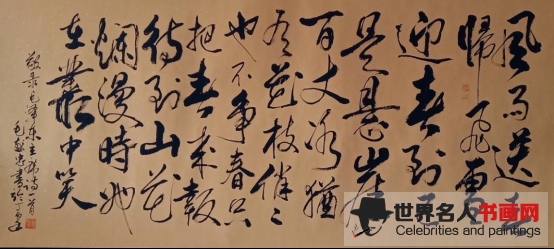 風雨送春
歸飛雪
迎春到已
是悬崖
百丈冰猶
有花枝俏〻
也不争春只
把春来報
待到山花
爛漫時她
在叢中笑
敬录毛泽东主席诗一首
書於丁酉
世界名人书画网
Celebrities and paintings